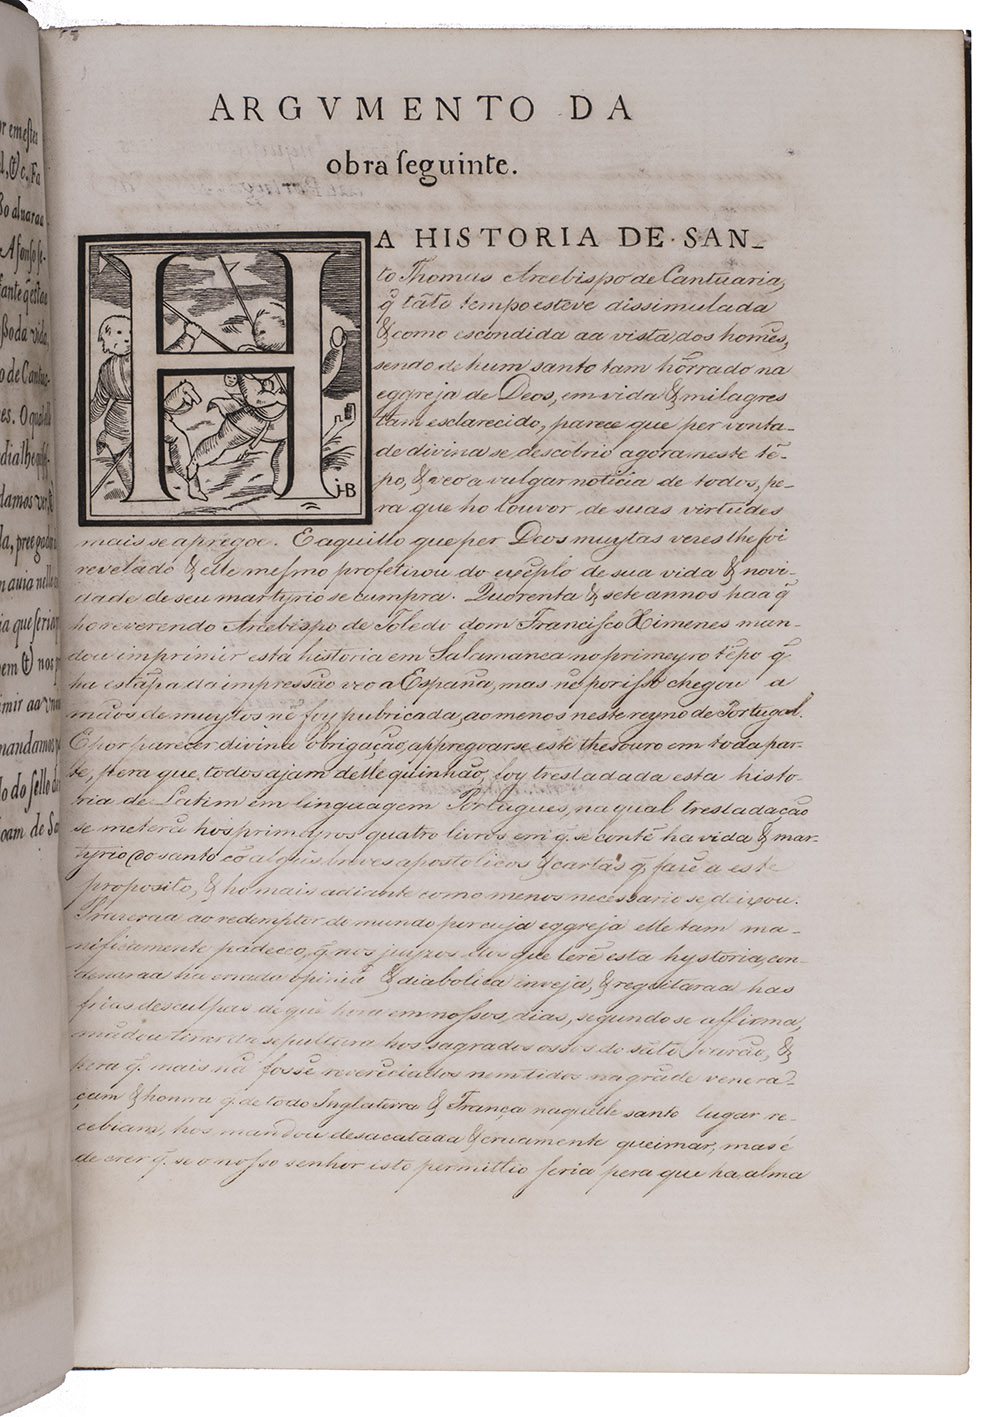 ARGVMENTO DA
obra ſeguinte.
HA HISTORIA DE SAN_
to Thomas Arcebispo de Cantuaria,
q̃ tãto tempo esteve dissimulada
& como escondida aa vista dos homẽs,
sendo de hum santo tam hõrrado na
eggreja de Deos, em vida & milagres
tam esclarecido, parece que per vonta-
de divina se descobrio agora neste tẽ-
po, & veo a vulgar noticia de todos, pe-
ra que ho louvor de suas virtudes
mais se apregoe. E aquillo que per Deos muytas vezes lhe foi
revelado & elle meſmo profetizou do exẽplo de sua vida & novi-
dade de seu martyrio se cumpra. Quorenta & sete annos ha a q̃
ho reverendo Arcebispo de Toledo dom Franciſco Ximenes man-
dou imprimir esta historia em Salamanca no primeyro tẽpo q̃
ha estãpa da impressão veo a Espana, mas nẽ por iſso chegou a
mãos de muytos nẽ foy pubricada, ao menos neste reyno de Portugal.
E por parecer divina obrigação, appregoarse este thesouro em toda par-
te, pera que todos ajam delle quinhão, foy tresladada esta histo-
ria de Latim em linguagem Portugues, na qual tresladação
se meterã hos primeyros quatro livros em q̃ se contẽ ha vida & mar-
tyrio do santo cõ algũs breves apostolicos & cartas q̃ fazẽ a este
proposito, & ho mais adiante como menos necessario se deixou.
Prazeraa ao redemptor do mundo por cuja eggreja elle tam ma-
nificamente padeceo, q̃ nos juizos dos que lerẽ esta hystoria, con-
denaraa ha errada opiniã & diabolica inveja, & regeitaraa has
frias desculpas de que hora em noſsos dias, segundo se affirma,
mãdou tirar da sepultura hos sagrados ossos do sãto varão, &
pera q̃ mais nã fossẽ reverẽciados nem tidos na grãde venera-
çam & honrra q̃ de todo Inglaterra & França naquelle santo lugar re-
cebiam, hos mandou desacatada & cruamente queimar, mas é
de crer q̃ se o noſso senhor isto permittio ſeria pera que ha alma